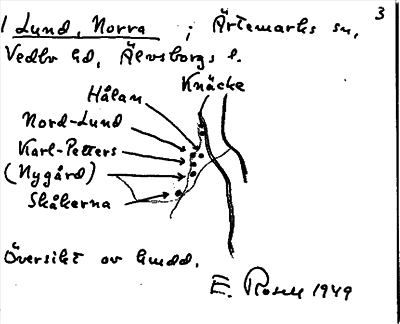 3
1 Lund, Norra ; Ärtemarks sn,
Vedbo hd, Älvsborgs l.
Knäcke
Hålan
Nord-Lund
Karl-Petters
(Nygård)
Skåkerna
Översikt av
E. 1949